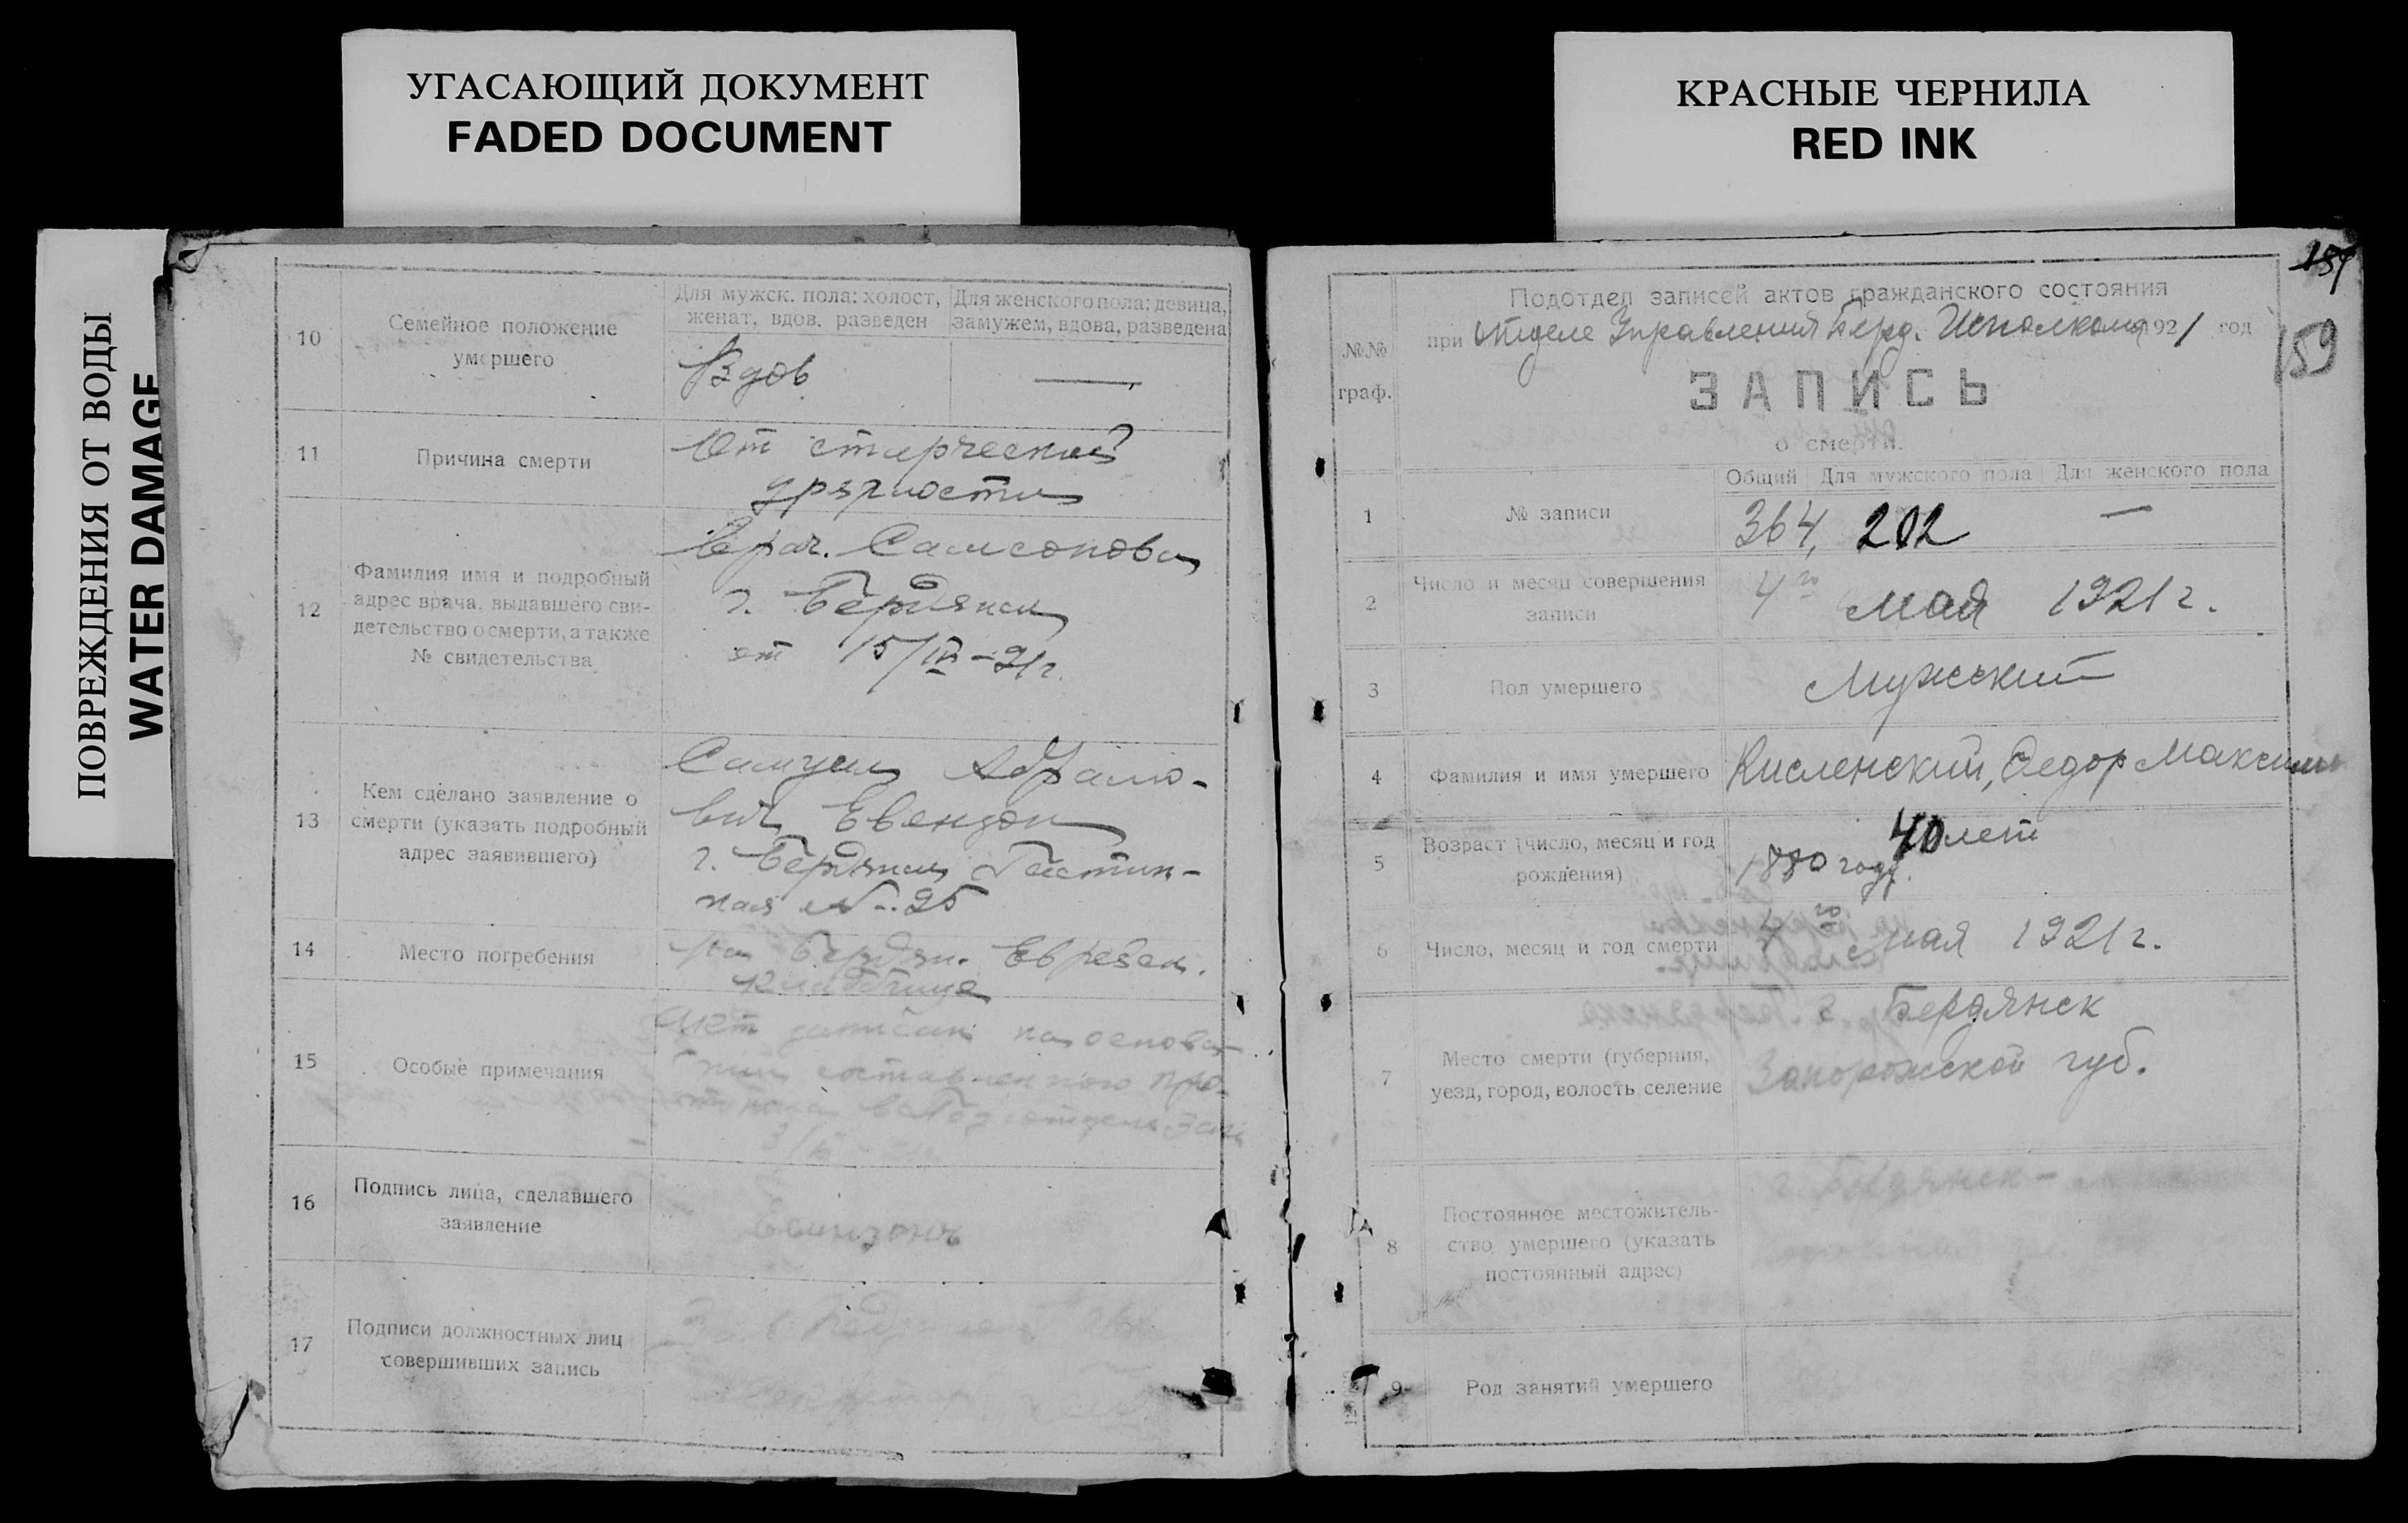 УГАСАЮЩИЙ ДОКУМЕНТ
FADED DOCUMENT
КРАСНЫЕ ЧЕРНИЛА
RED INK
ПОВРЕЖДЕНИЯ ОТ ВОДЫ
WATER DAMAGE
10
Семейное положение
умершего
Для мужск. пола: холост,
женат, вдов. разведен
Для женского пола: девица,
замужем, вдова, разведена
Вдов
—
11
Причина смерти
От старческой
дряхлости
12
Фамилия имя и подробный
адрес врача, выдавшего сви-
детельство о смерти, а также
№ свидетельства
Врач. Самсонова
г. Бердянск
от 15/IV – 21 г.
13
Кем сделано заявление о
смерти (указать подробный
адрес заявившего)
Самуил Абрамо-
вич Евензон
г. Бердянск
ная № 25
14
Место погребения
На Бердян. Еврейск.
кладбище
15
Особые примечания
Акт записан на основа-
нии составленного про-
16
Подпись лица, сделавшего
заявление
17
Подписи должностных лиц
совершивших запись
159
№№
граф.
Подотдел записей актов гражданского состояния
при Отделе Управления Берд. Исполкома 1921 год
ЗАПИСЬ
о смерти.
Общий
Для мужского пола
Для женского пола
1
№ записи
364,
202
—
2
Число и месяц совершения
записи
4го мая 1921 г.
3
Пол умершего
Мужский
4
Фамилия и имя умершего
Кисленский, Федор Максим
5
Возраст (число, месяц и год
рождения)
40 лет
1880 году.
6
Число, месяц и год смерти
4го мая 1921 г.
7
Место смерти (губерния,
уезд, город, волость, селение
г. Бердянск
Запорожской губ.
8
Постоянное местожитель-
ство умершего (указать
постоянный адрес)
г. Бердянск –
9
Род занятий умершего